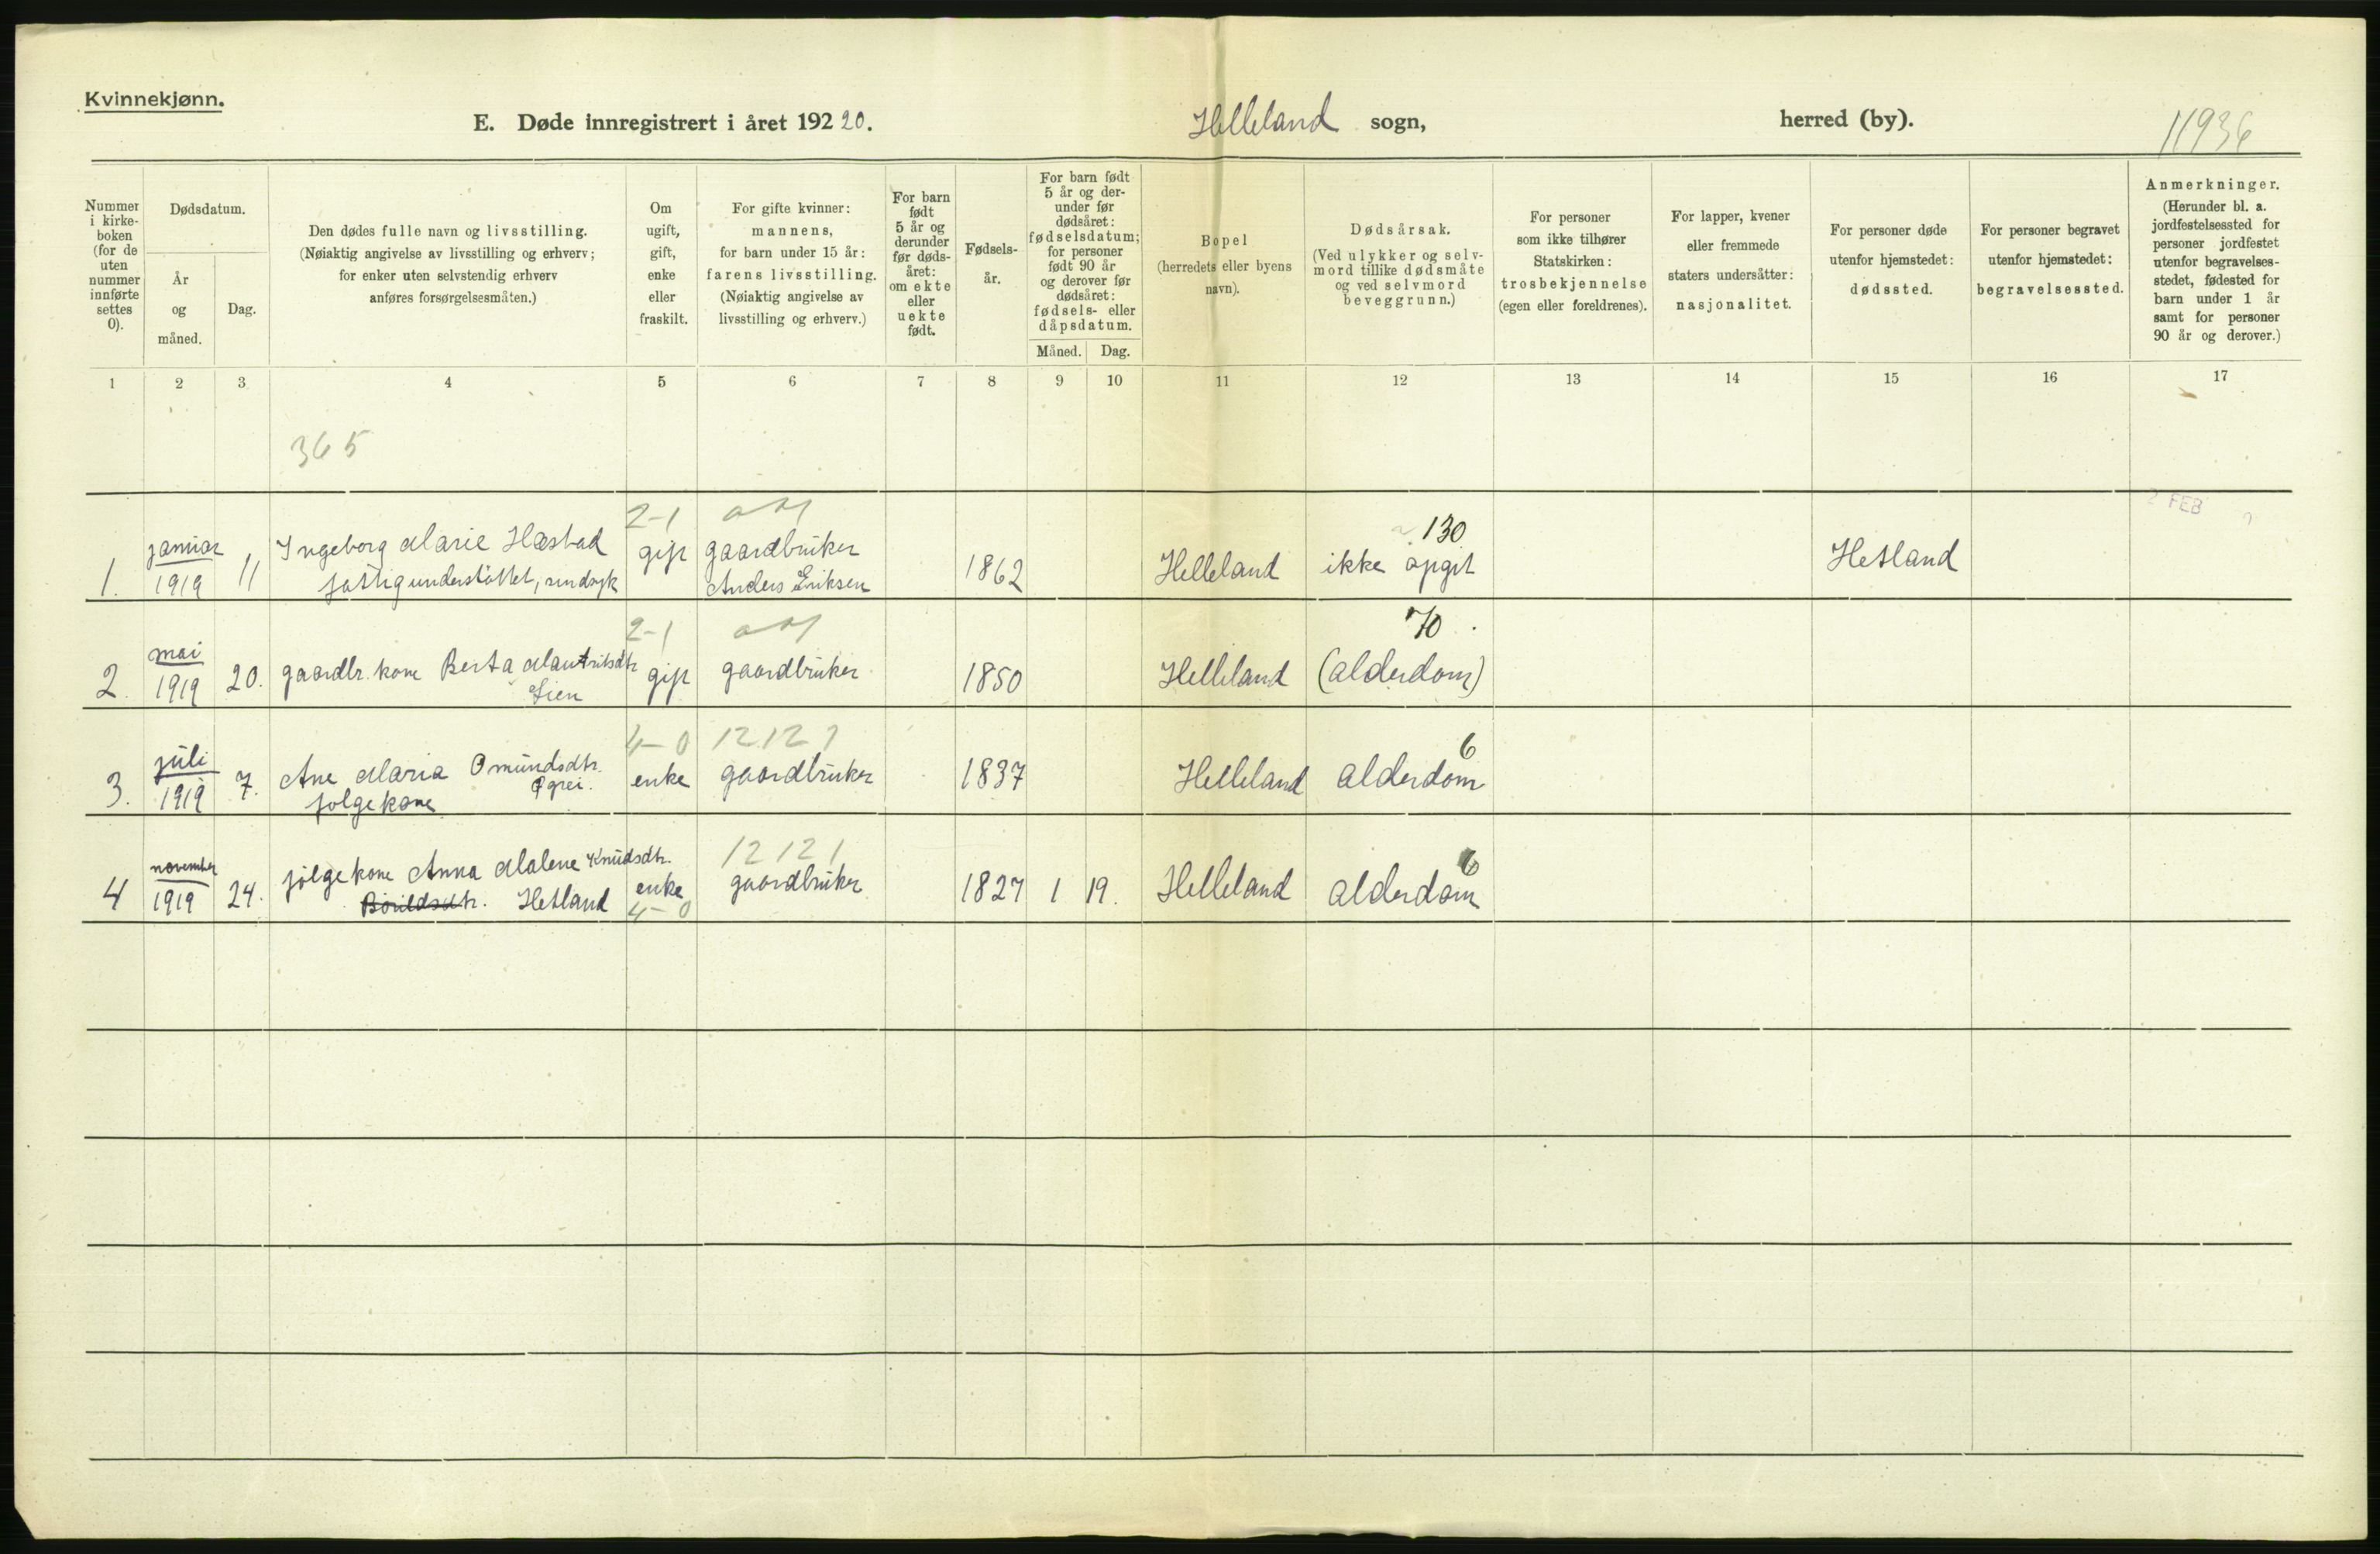 Kvinnekjønn.
E. Døde innregistrert i året 192 20. Helleland sogn, herred (by). 11936
Nummer i kirke-boken (for de uten nummer innførte settes 0).
Dødsdatum.
År og måned.
Dag.
Den dødes fulle navn og livsstilling.
(Nøiaktig angivelse av livsstilling og erhverv;
for enker uten selvstendig erhverv
anføres forsørgelsesmåten.)
Om ugift, gift, enke eller fraskilt.
For gifte kvinner:
mannens,
for barn under 15 år:
farens livsstilling.
(Nøiaktig angivelse av
livsstilling og erhverv.)
For barn født 5 år og derunder før døds-året: om ekte eller uekte født.
Fødsels-år.
For barn født
5 år og der-
under før
dødsåret:
fødselsdatum;
for personer
født 90 år
og derover før
dødsåret:
fødsels- eller
dåpsdatum.
Måned. Dag.
Bopel
(herredets eller byens
navn).
Dødsårsak.
(Ved ulykker og selv-
mord tillike dødsmåte
og ved selvmord
beveggrunn.)
For personer
som ikke tilhører
Statskirken:
trosbekjennelse
(egen eller foreldrenes).
For lapper, kvener
eller fremmede
staters undersåtter:
nasjonalitet.
For personer døde
utenfor hjemstedet:
dødssted.
For personer begravet
utenfor hjemstedet:
begravelsessted.
Anmerkninger.
(Herunder bl. a.
jordfestelsessted for
personer jordfestet
utenfor begravelses-
stedet, fødested for
barn under 1 år
samt for personer
90 år og derover.)
1 2 3 4 5 6 7 8 9 10 11 12 13 14 15 16 17
365
2-1 130 2 FEB
1. januar 1919 11 Ingeborg Marie Hæstad gift gaardbruker 1862 Helleland ikke opgit Hetland
fattigunderstøttet, sindsyk Anders Eriksen
2-1 70
2. mai 1919 20. gaardbr. kone Berta gift gaardbruker 1850 Helleland (alderdom)
4-0 12121 6
3. juli 1919 7. Ane Maria Omundsdtr. enke gaardbruker 1837 Helleland alderdom
Øgrei.
følgekone
12121 6
4 november 1919 24. følgekone Anna Malene Knudsdtr. enke gaardbruker 1827 1 19. Helleland alderdom
Hetland 4-0